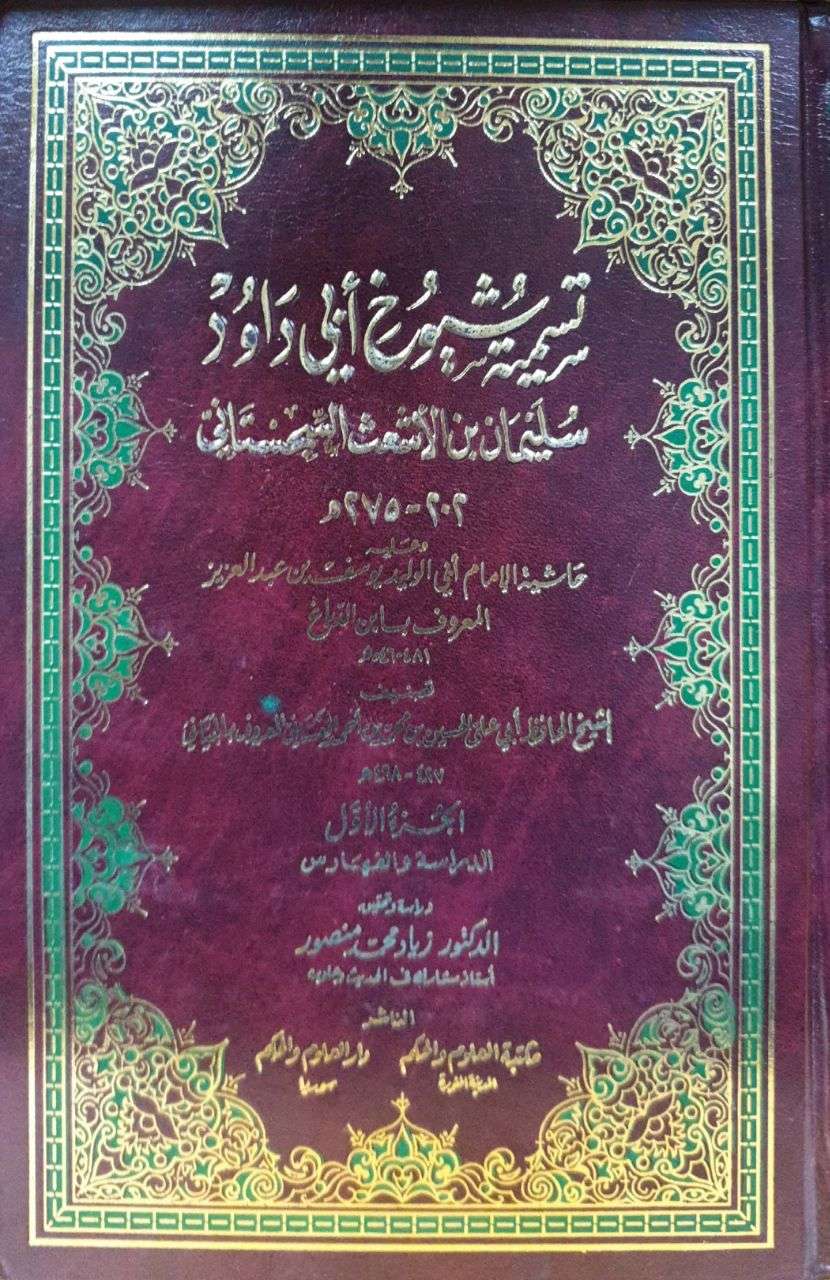 تسمية شيوخ أبي داود
سليمان بن الأشعث السجستاني
٢٠٢ - ٢٧٥هـ
وعليه
حاشية الإمام أبي الوليد يوسف بن عبد العزيز
المعروف بابن الدباغ
٤٨١-٥٤٦هـ
تصنيف
الشيخ الحافظ أبي علي الحسين بن محمد بن أحمد الغساني المعروف بالجياني
٤٢٧ - ٤٩٨هـ
الجزء الأول
الدراسة والفهارس
دراسة وتحقيق
الدكتور زياد محمد منصور
أستاذ مشارك في الحديث وعلومه
الناشر
مكتبة العلوم والحكم دار العلوم والحكم
المدينة المنورة سوريا